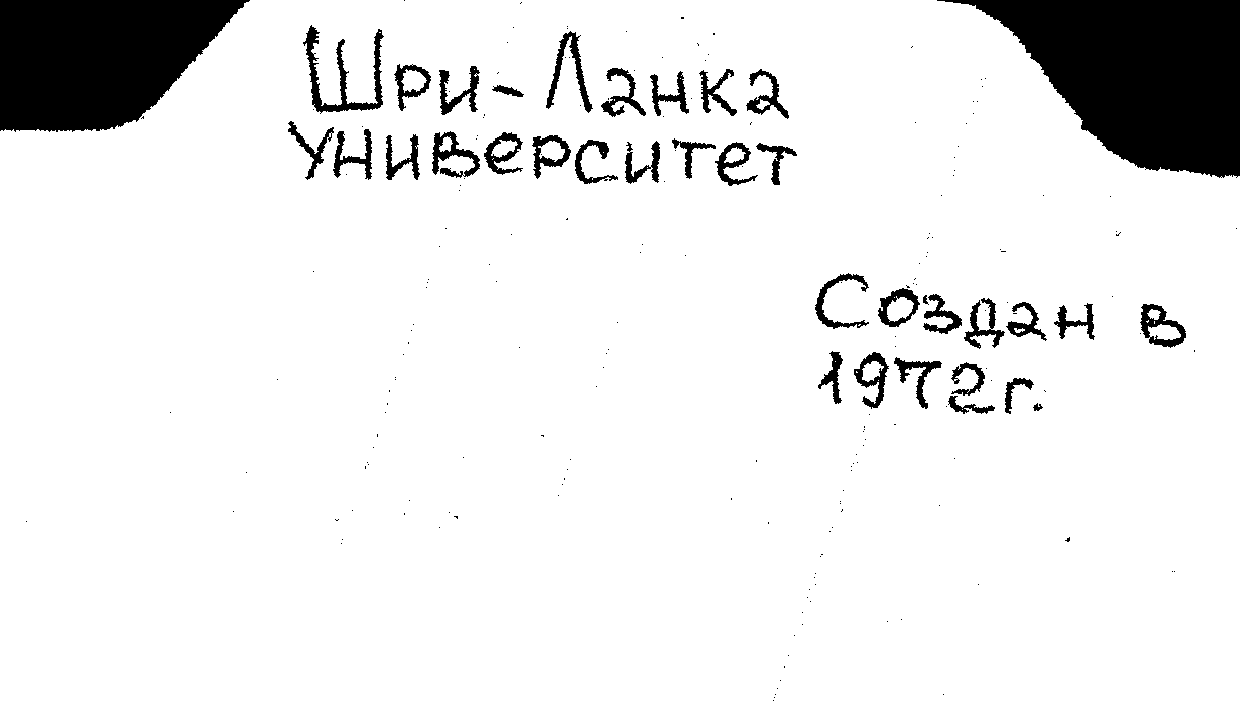 Шри-Ланка
Университет
Создан в
1972г.